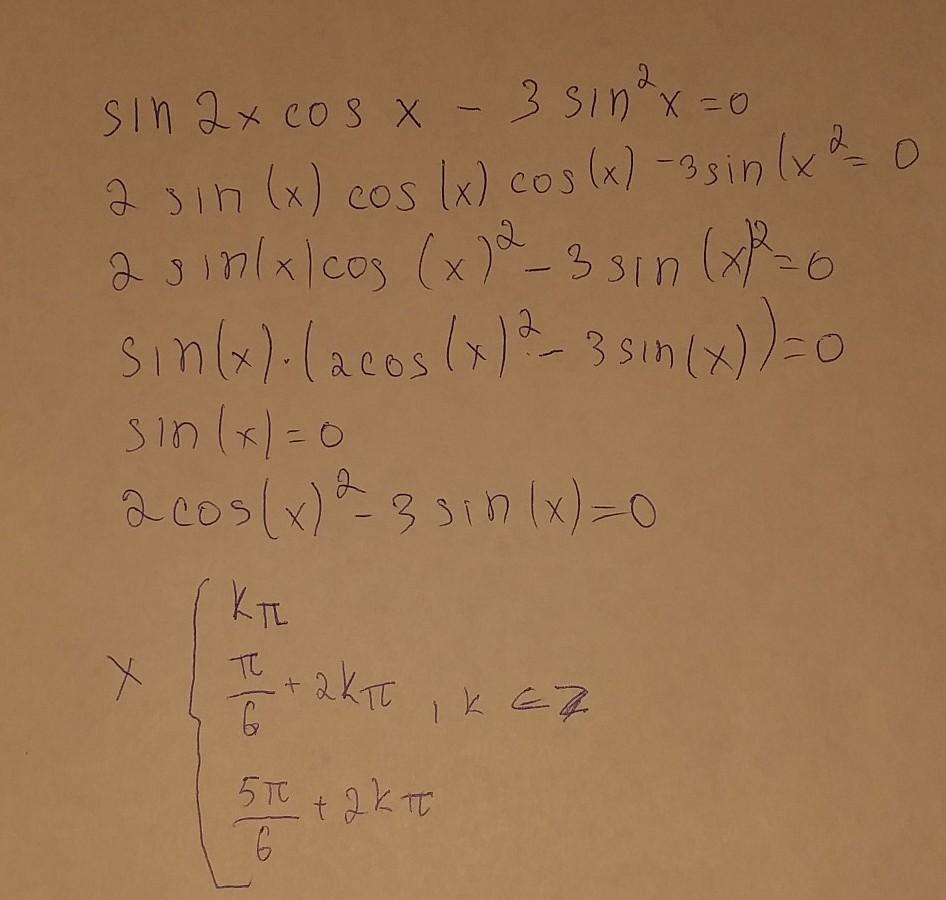 sin 2x cos x - 3 sin²x = 0
2 sin (x) cos (x) cos (x) - 3 sin (x² = 0
2 sin(x) cos (x)² - 3 sin (x)² = 0
sin(x)·(2cos(x)² - 3 sin(x)) = 0
sin(x) = 0
2 cos(x)² - 3 sin(x) = 0
kπ
x { π/6 + 2kπ , k ∈ Z
5π/6 + 2kπ